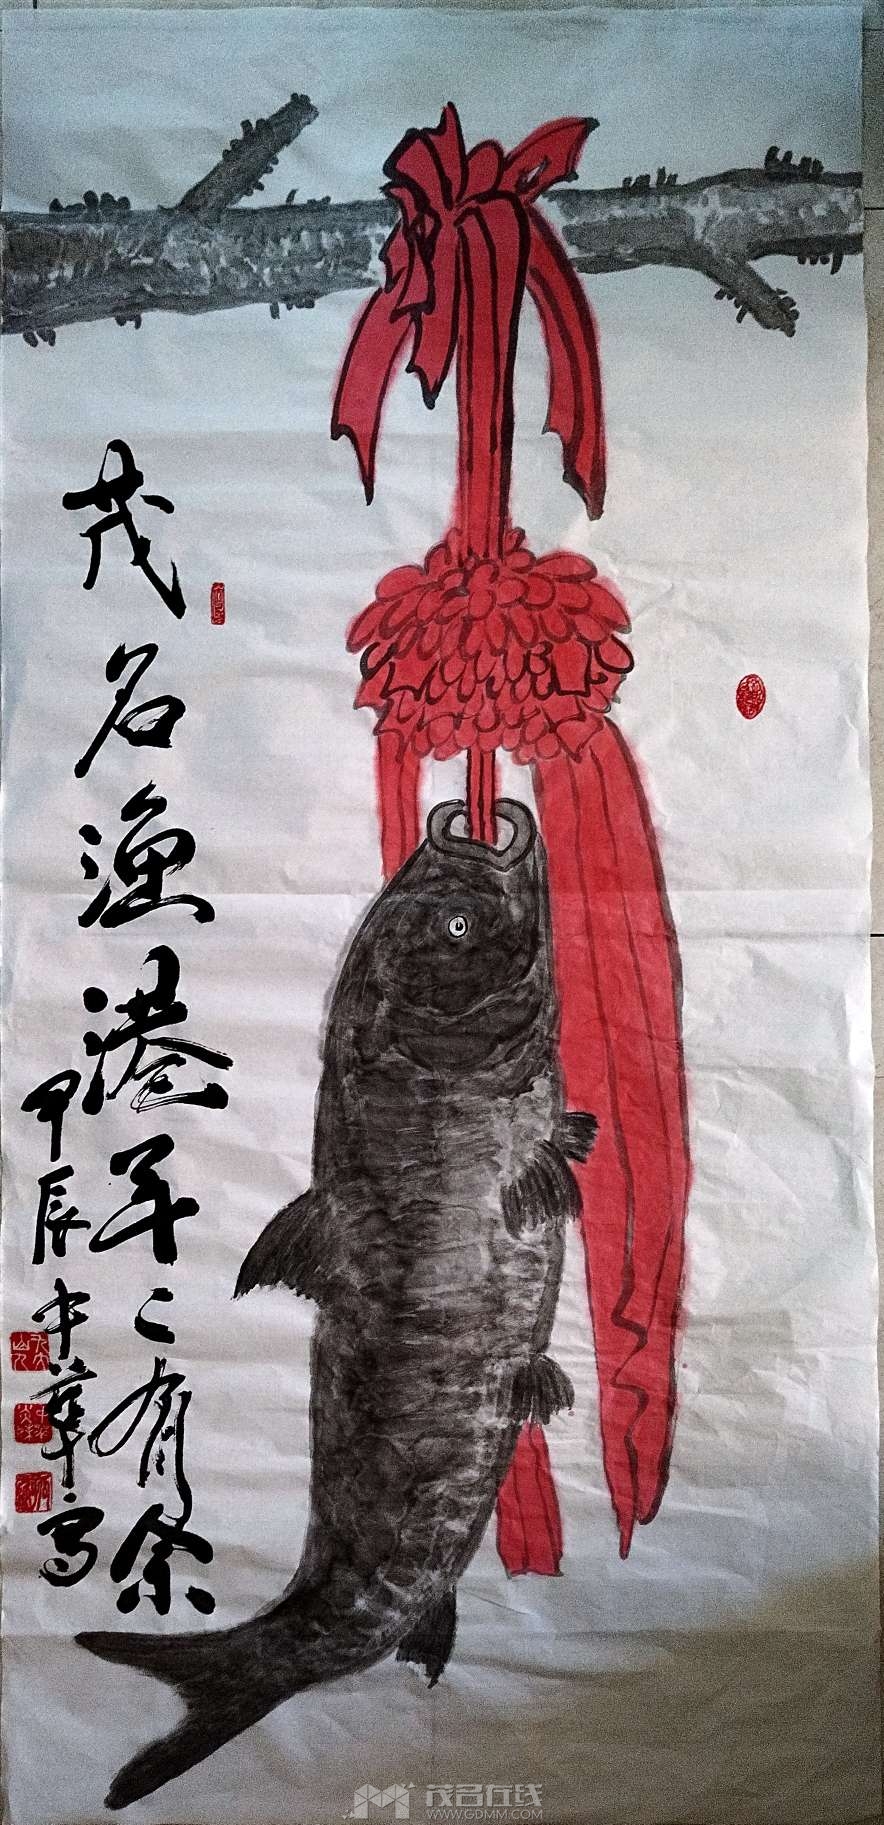 茂名渔港年々有余
甲辰中华写
茂名在线
WWW.GDMM.COM